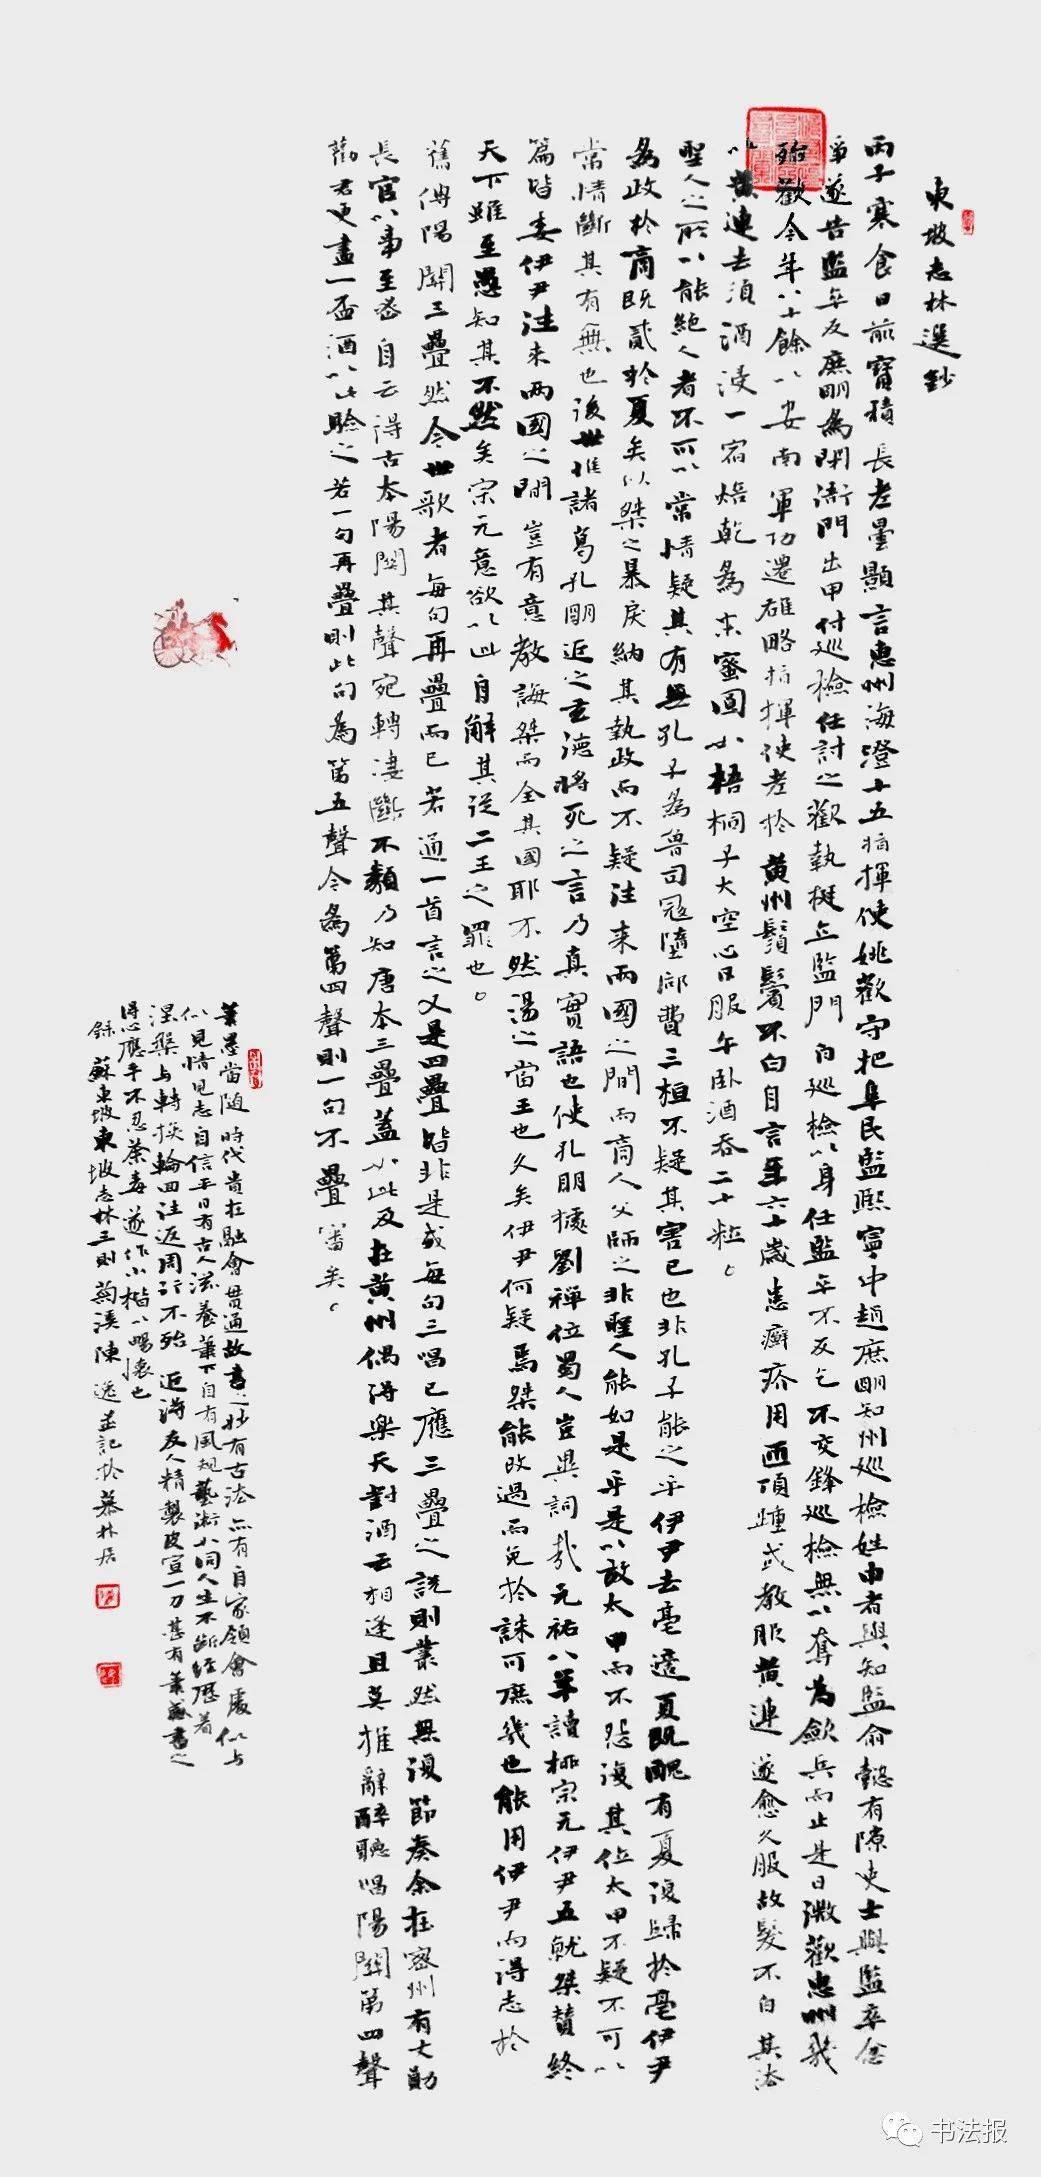 東坡志林選鈔
丙子寒食日前寶積長老曇顯言惠州海澄十五指揮使姚歡守把阜民監熙寧中趙庶明知州巡檢姓申者與知監俞懿有隙吏士與監卒忿
爭遂告監卒反庶明為閉衙門出甲付巡檢往討之歡執梃立監門白巡檢以身任監卒不反乞不交鋒巡檢無以奪為斂兵而止是日微歡惠州幾
殆歡今年八十餘以安南軍功遷雄略指揮使老於黃州鬚鬢不白自言年六十歲患癬疥周匝頂踵或教服黃連遂愈久服故髮不白其法
以黃連去須酒浸一宿焙乾為末蜜圓如梧桐子大空心日服午臥酒吞二十粒
聖人之所以能絕人者不可以常情疑其有無孔子為魯司寇墮郈費三桓不疑其害己也非孔子能之乎伊尹去亳適夏既醜有夏復歸於亳伊尹
為政於商既貳於夏矣以桀之暴戾納其執政而不疑往來兩國之間而商人父師之非聖人能如是乎是以放太甲而不怨復其位太甲不疑不可以
常情斷其有無也後世惟諸葛孔明近之玄德將死之言乃真實語也使孔明據劉禪位蜀人豈異詞哉元祐八年讀柳宗元伊尹五就桀贊終
篇皆妄伊尹往來兩國之間豈有意教誨桀而全其國耶不然湯之當王也久矣伊尹何疑焉桀能改過而免於誅可庶幾也能用伊尹而得志於
天下雖至愚知其不然矣宗元意欲以此自解其從二王之罪也
舊傳陽關三疊然今世歌者每句再疊而已若通一首言之又是四疊皆非是或每句三唱已應三疊之說則叢然無復節奏余在密州有文勛
長官以事至密自云得古本陽關其聲宛轉淒斷不類乃知唐本三疊蓋如此及在黃州偶得樂天對酒云相逢且莫推辭醉聽唱陽關第四聲
勸君更盡一盃酒以此驗之若一句再疊則此句為第五聲今為第四聲則一句不疊審矣
筆墨當隨時代貴在融會貫通故書之妙有古法亦有自家領會處似與
似見情見志自信平日有古人滋養筆下自有風規藝術如同人生不斷經歷着
涅槃與轉換輪回往返周行不殆近得友人精製皮宣一刀甚有筆感書之
得心應手不忍荼毒遂作小楷以暢懷也
錄蘇東坡東坡志林三則菊溪陳逸並記於慕林居
书法报